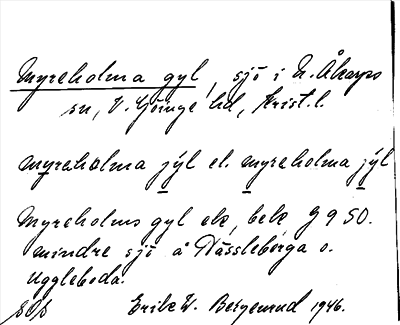 Myreholma gyl, sjö i N. Åkarps
sn, V. Göinge hd, Krist. l.
myreholma jýl el. myreholma jýl
Myreholms gyl ek, bek J 9 50.
mindre sjö å Nässleberga o.
Uggleboda.
Erik W. Bergenrud 1946.